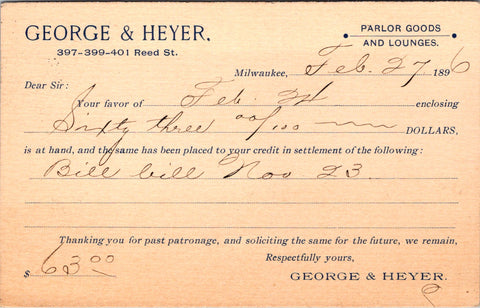 GEORGE & HEYER,
397-399-401 Reed St.
PARLOR GOODS
AND LOUNGES.
Milwaukee, Feb. 27 1896
Dear Sir:
Your favor of Feb. 24 enclosing
Sixty three 00/100 DOLLARS,
is at hand, and the same has been placed to your credit in settlement of the following:
Bill bill Nov 23.
Thanking you for past patronage, and soliciting the same for the future, we remain,
Respectfully yours,
$ 63.00
GEORGE & HEYER.